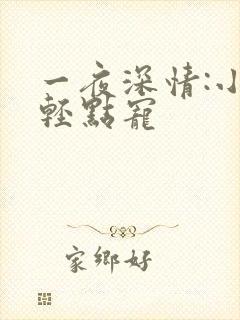 一夜深情:小
輕點寵
家鄉好